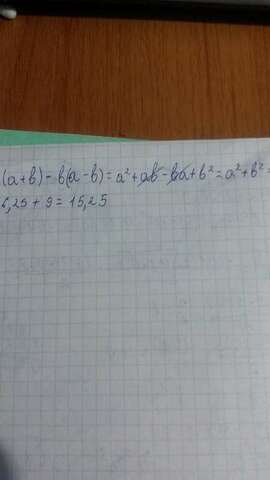 (a+b) - b(a-b) = a² + ab - ba + b² = a² + b² =
6,25 + 9 = 15,25